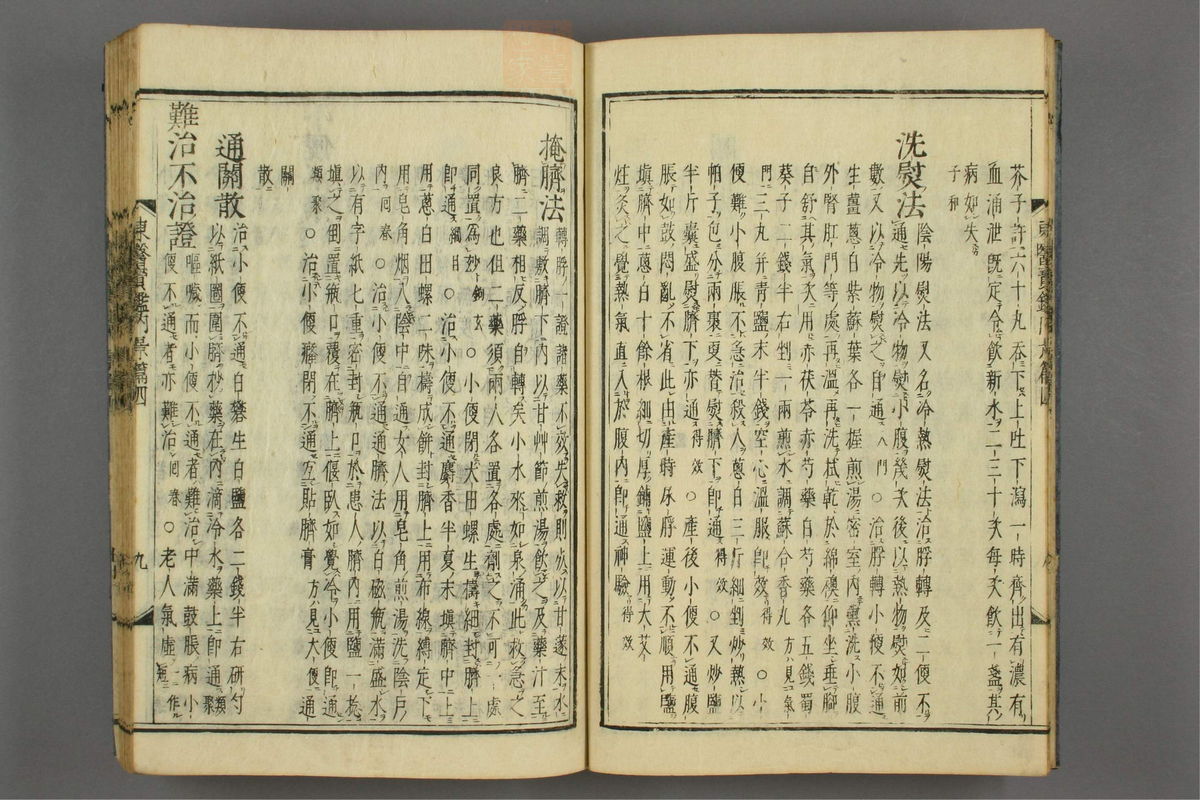 芥子許六十丸吞下上吐下瀉一時齊出有濃有
血涌泄旣定令飮新水二三十次每次飮一盞其
病如失
子和
洗熨法 陰陽熨法又名冷熱熨法治脬轉及二便不
通先以冷物熨小腹幾次後以熱物熨如前
數又以冷物熨之自通 入門 ○治脬轉小便不通
生薑葱白紫蘇葉各一握煎湯密室內熏洗小腹
外腎肛門等處再溫再洗拭乾於綿襖仰坐垂脚
自舒其氣次用赤茯苓赤芍藥白芍藥各五錢蜀
葵子二錢半右剉一兩煎水調蘇合香丸 方見氣
門 三丸幷靑鹽末半錢空心溫服卽效 得效 ○小
便難小腹脹不急治殺人葱白三斤細剉炒熱以
帕子包分兩裹更替熨臍下卽通 得效 ○又炒鹽
半斤囊盛熨臍下亦通 得效 ○產後小便不通腹
脹如鼓悶亂不省此由產時尿脬運動不順用鹽
塡臍中葱白十餘根細切厚鋪鹽上用大艾
炷灸之覺熱氣直入於腹內卽通神驗 得效
東醫寶鑑內景篇四
掩臍法 轉脬一證諸藥不效失救則死以甘遂末水
調敷臍下內以甘艸節煎湯飮之及藥汁至
臍二藥相反脬自轉矣小水來如泉涌此救急之
良方也但二藥須兩人各置各處劑之不可一處
同置爲妙 鉤玄 ○小便閉大田螺生擣細封臍上
卽通 綱目 ○治小便不通麝香半夏末塡臍中上
用葱白田螺二味擣成餠封臍上用布線縛定下
用皂角烟入陰中自通女人用皂角煎湯洗陰戶
內 回春 ○治小便不通通臍法以白磁甁滿盛水
以有字紙七重密封甁口於患人臍內用鹽一捻
塡之倒置甁口覆在臍上偃臥如覺冷小便卽通
類聚 ○治小便癃閉不通互貼臍膏 方見大便 通
關
散
通關散 治小便不通白礬生白鹽各二錢半右硏勻
以紙圈圍臍抄藥在內滴冷水藥上卽通 類聚
難治不治證 嘔噦而小便不通者難治中滿鼓脹病小
便不通者亦難治 回春 ○老人氣虛 一作短
九